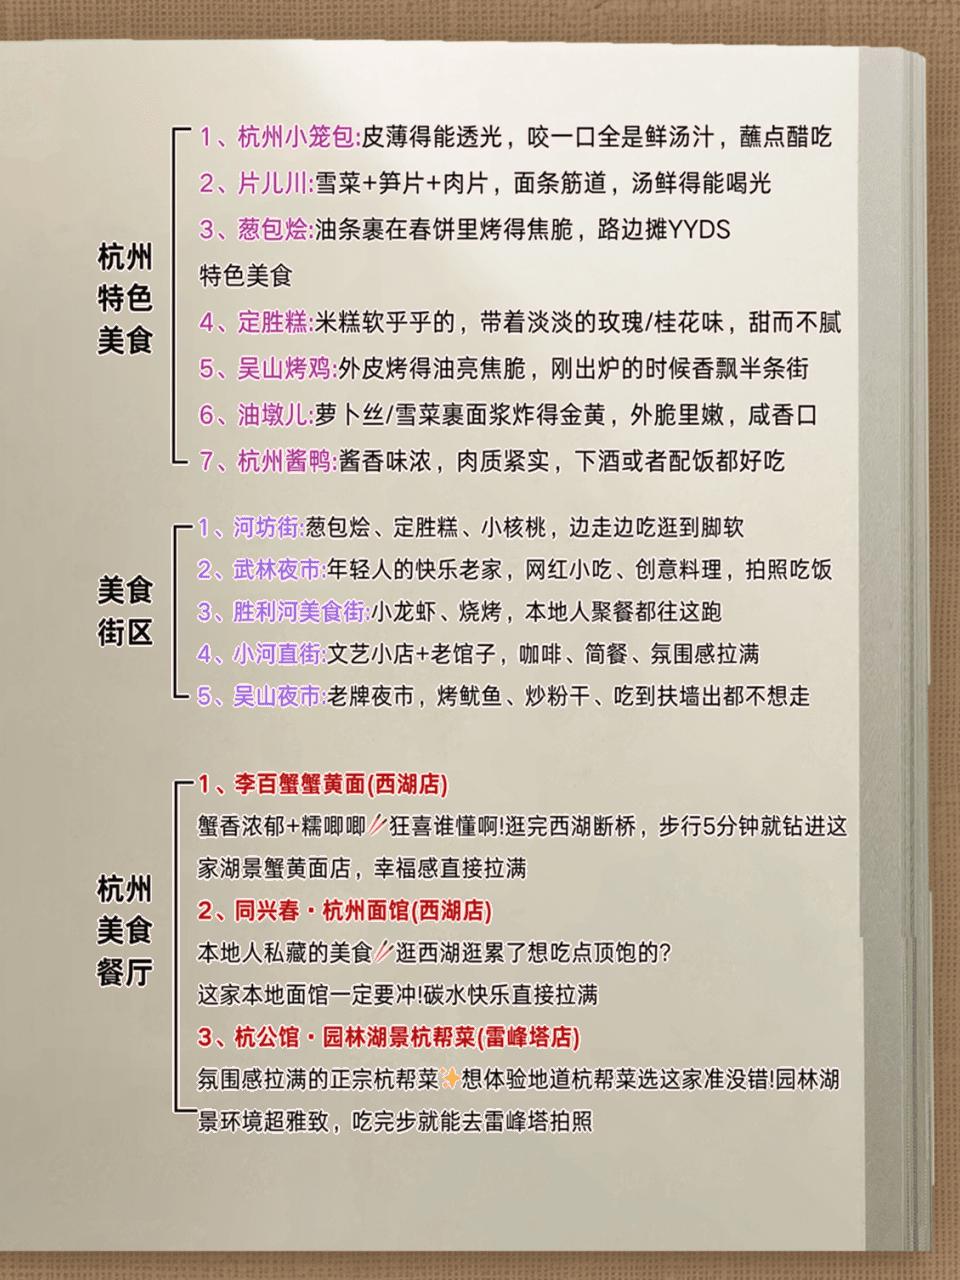 杭州
特色
美食
1、杭州小笼包:皮薄得能透光，咬一口全是鲜汤汁，蘸点醋吃
2、片儿川:雪菜+笋片+肉片，面条筋道，汤鲜得能喝光
3、葱包烩:油条裹在春饼里烤得焦脆，路边摊YYDS
特色美食
4、定胜糕:米糕软乎乎的，带着淡淡的玫瑰/桂花味，甜而不腻
5、吴山烤鸡:外皮烤得油亮焦脆，刚出炉的时候香飘半条街
6、油墩儿:萝卜丝/雪菜裹面浆炸得金黄，外脆里嫩，咸香口
7、杭州酱鸭:酱香味浓，肉质紧实，下酒或者配饭都好吃
美食
街区
1、河坊街:葱包烩、定胜糕、小核桃，边走边吃逛到脚软
2、武林夜市:年轻人的快乐老家，网红小吃、创意料理，拍照吃饭
3、胜利河美食街:小龙虾、烧烤，本地人聚餐都往这跑
4、小河直街:文艺小店+老馆子，咖啡、简餐、氛围感拉满
5、吴山夜市:老牌夜市，烤鱿鱼、炒粉干、吃到扶墙出都不想走
杭州
美食
餐厅
1、李百蟹蟹黄面(西湖店)
蟹香浓郁+糯唧唧🥢狂喜谁懂啊!逛完西湖断桥，步行5分钟就钻进这
家湖景蟹黄面店，幸福感直接拉满
2、同兴春·杭州面馆(西湖店)
本地人私藏的美食🥢逛西湖逛累了想吃点顶饱的?
这家本地面馆一定要冲!碳水快乐直接拉满
3、杭公馆·园林湖景杭帮菜(雷峰塔店)
氛围感拉满的正宗杭帮菜✨想体验地道杭帮菜选这家准没错!园林湖
景环境超雅致，吃完步就能去雷峰塔拍照